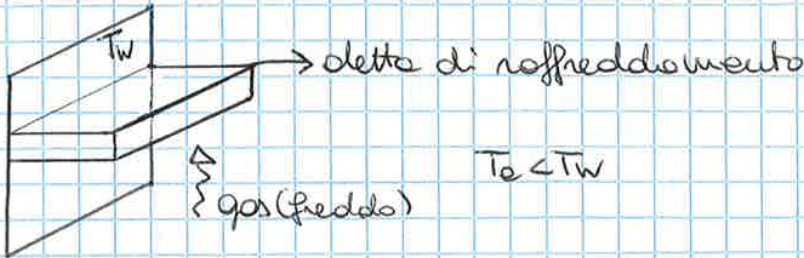 Tw
→ aletta di raffreddamento
Ta < Tw
gas (freddo)